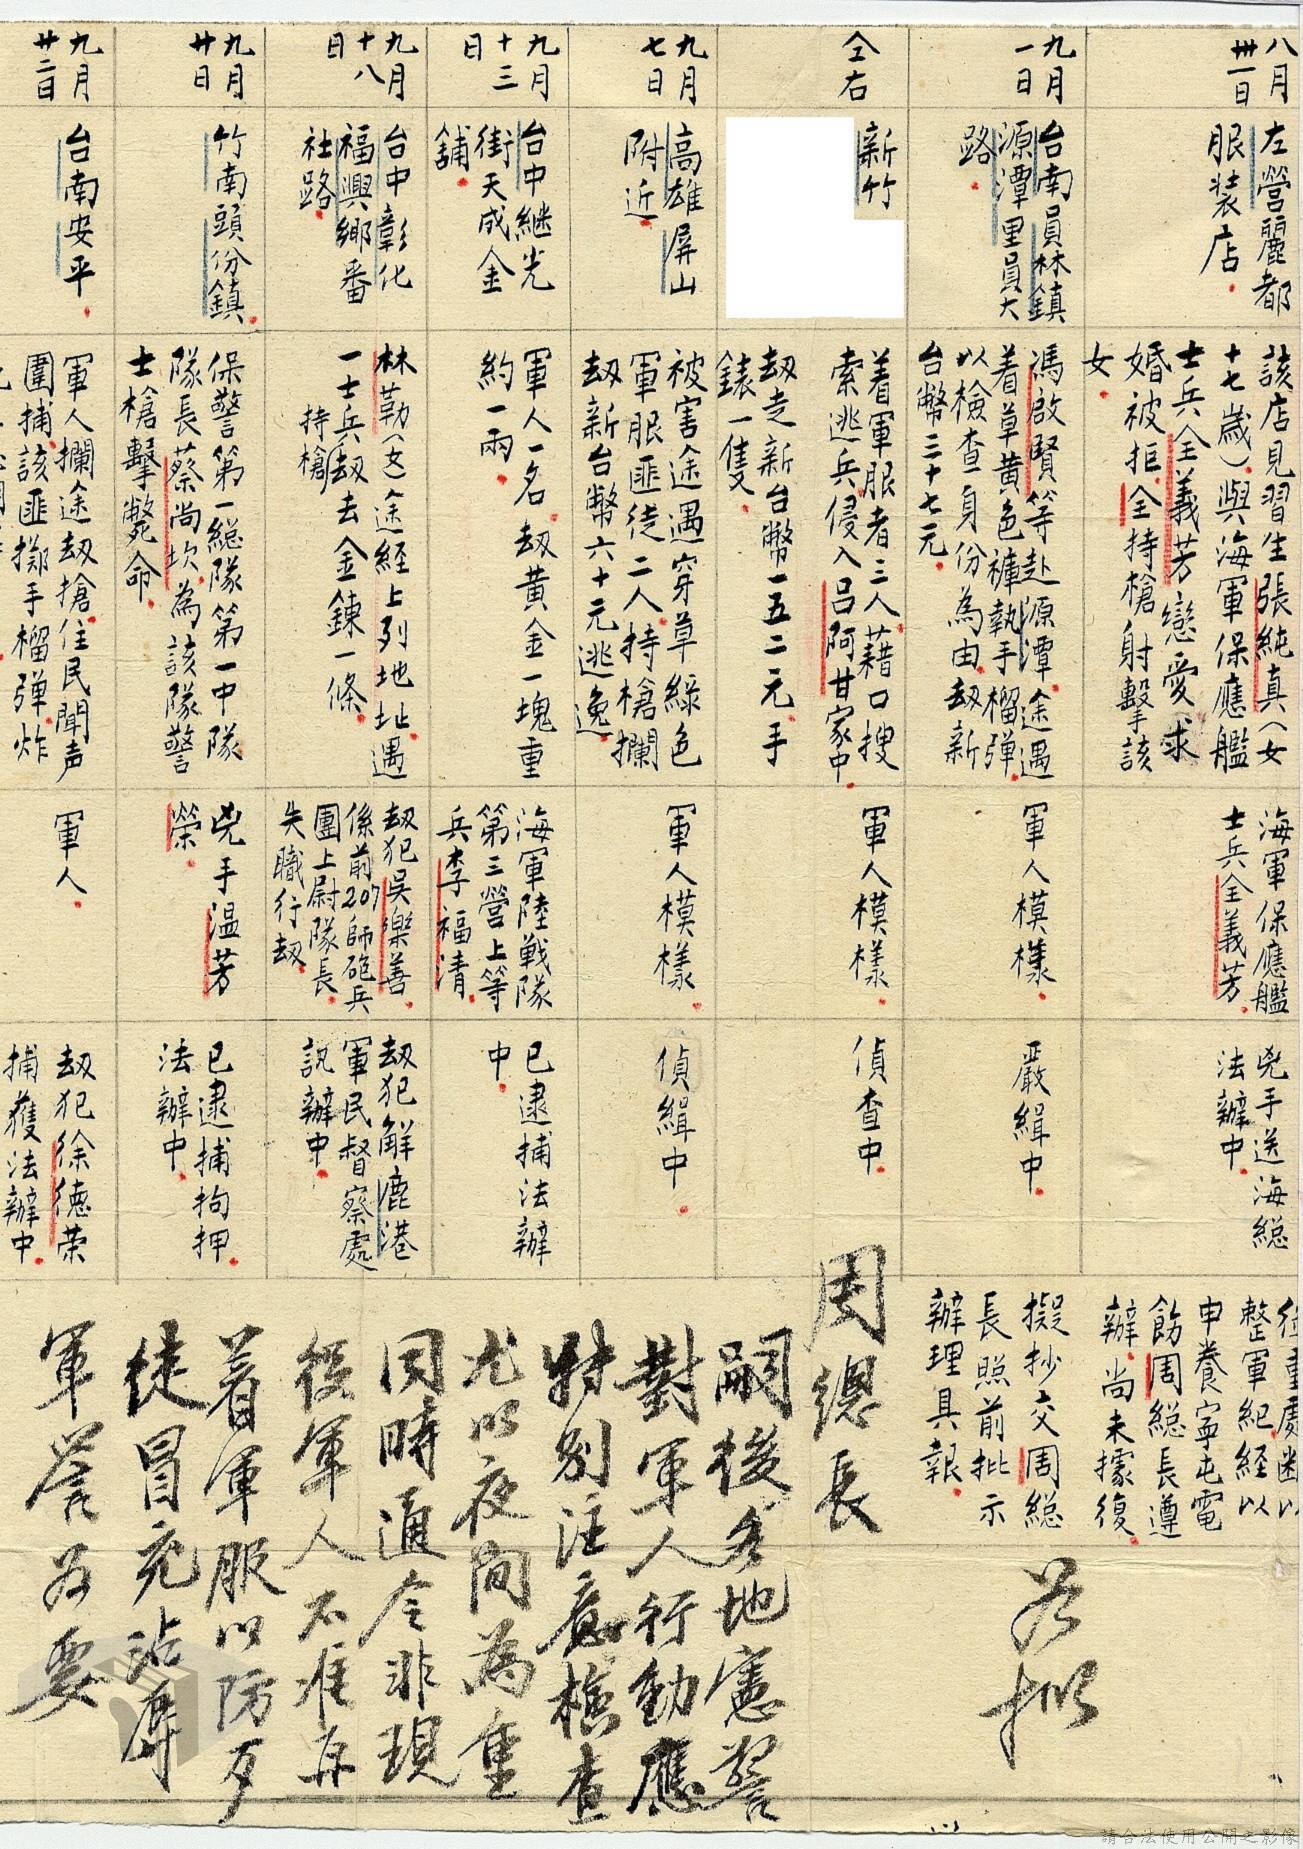 八月
卅一日
左營麗都
服裝店．
該店見習生張純真（女
十七歲）與海軍保應艦
士兵全義芳戀愛求
婚被拒全持槍射擊該
女．
海軍保應艦
士兵全義芳．
兇手送海總
法辦中．
整軍紀經以
申養寧屯電
飭周総長遵
辦尚未據復．
九月
一日
台南員林鎮
源潭里員大
路．
馮啟賢等赴源潭途遇
着草黃色褲執手榴弹．
以檢查身份為由刼新
台幣三十七元．
軍人模樣．
嚴緝中．
擬抄交周総
長照前批示
辦理具報．
仝右
新竹
着軍服者三人藉口搜
索逃兵侵入呂阿甘家中．
刼走新台幣一五二元手
錶一隻．
軍人模樣．
偵查中．
九月
七日
高雄屏山
附近．
被害途遇穿草綠色
軍服匪徒二人持槍攔
刼新台幣六十元逃逸．
軍人模樣．
偵緝中．
九月
十三
日
台中繼光
街天成金
舖．
軍人一名刼黃金一塊重
約一兩．
海軍陸戰隊
第三營上等
兵李福清．
已逮捕法辦
中．
九月
十八
日
台中彰化
福興鄉番
社路．
林勒（女）途經上列地址遇
一士兵刼去金鍊一條．
持槍
刼犯吳樂善
係前207師砲兵
團上尉隊長．
失職行刼．
刼犯解鹿港
軍民督察處
訊辦中．
九月
廿日
竹南頭份鎮．
保警第一総隊第一中隊
隊長蔡尚坎為該隊警
士槍擊斃命．
兇手温芳
榮．
已逮捕拘押
法辦中．
九月
廿二日
台南安平．
軍人攔途刼搶住民聞声
圍捕該匪擲手榴弹炸
軍人．
刼犯徐德荣
捕獲法辦中．
如擬
周總長
嗣後各地憲警
對軍人行動應
特別注意檢查
尤以夜间為重
同時通令非現
役軍人不准再
着軍服以防歹
徒冒充沾辱
軍譽為要
請合法使用公開之影像